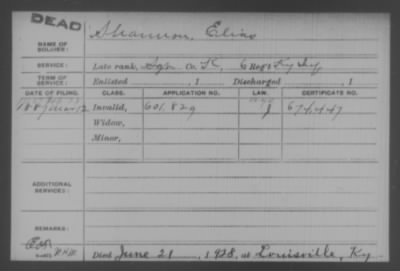 DEAD
NAME OF SOLDIER: Shannon, Elias
SERVICE: Late rank, Sgt. Co. K, 6 Reg't Ky Inf
TERM OF SERVICE: Enlisted , 1 Discharged , 1
DATE OF FILING. CLASS. APPLICATION NO. LAW. CERTIFICATE NO.
1887 Mar 12 Invalid, 601.829 674,447
Widow,
Minor,
ADDITIONAL SERVICES:
REMARKS:
Died June 21 , 1928, at Louisville, Ky.